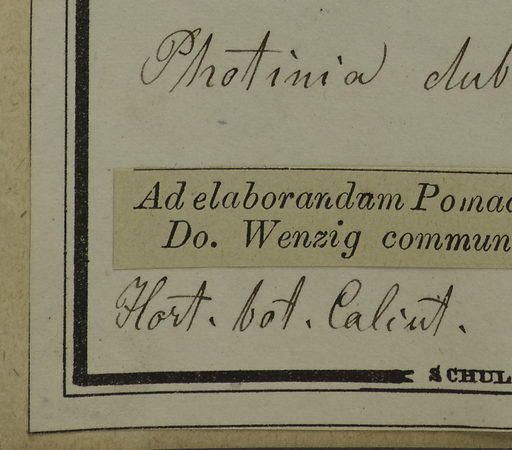 Photinia dub
Ad elaborandam Pomac
Do. Wenzig commun
Hort. bot. Calcut.
SCHUL